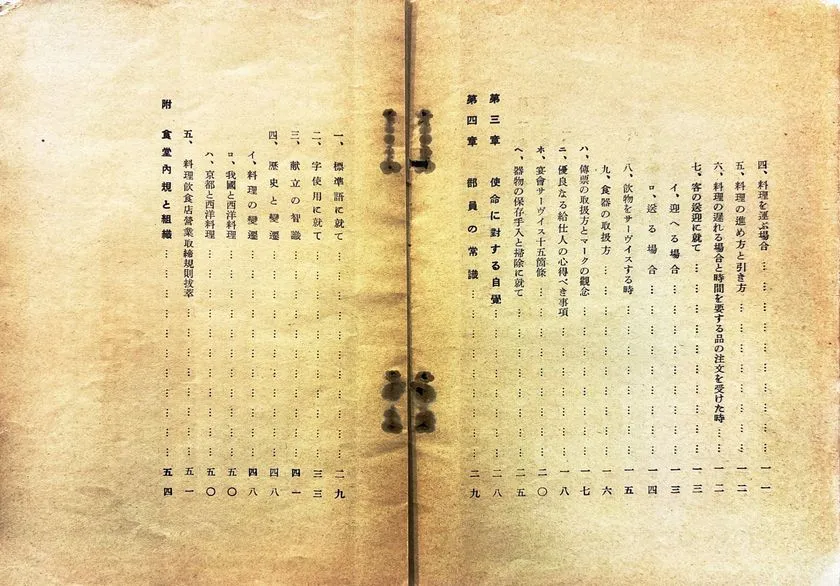 四、料理を運ぶ場合……一一
五、料理の進め方と引き方……一二
六、料理の遅れる場合と時間を要する品の注文を受けた時……一二
七、客の送迎に就て……一三
イ、迎へる場合……一三
ロ、送る場合……一四
八、飮物をサーヴイスする時……一五
九、食器の取扱方……一六
ハ、傳票の取扱方とマークの觀念……一七
ニ、優良なる給仕人の心得べき事項……一八
ホ、宴會サーヴイス十五箇條……二〇
ヘ、器物の保存手入と掃除に就て……二五
第三章 使命に對する自覺……二八
第四章 部員の常識……二九
一、標準語に就て……二九
二、字使用に就て……三三
三、献立の智識……四一
四、歷史と變遷……四八
イ、料理の變遷……四八
ロ、我國と西洋料理……五〇
ハ、京都と西洋料理……五〇
五、料理飮食店營業取締規則拔萃……五一
附 食堂內規と組織……五四